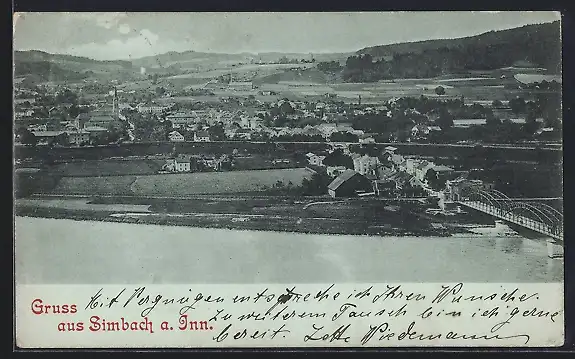 Gruss
aus Simbach a. Inn.
Mit Vergnügen entspreche ich Ihren Wunsche.
Zu weiterem Tausch bin ich gerne
bereit. Lotte Wiedemann